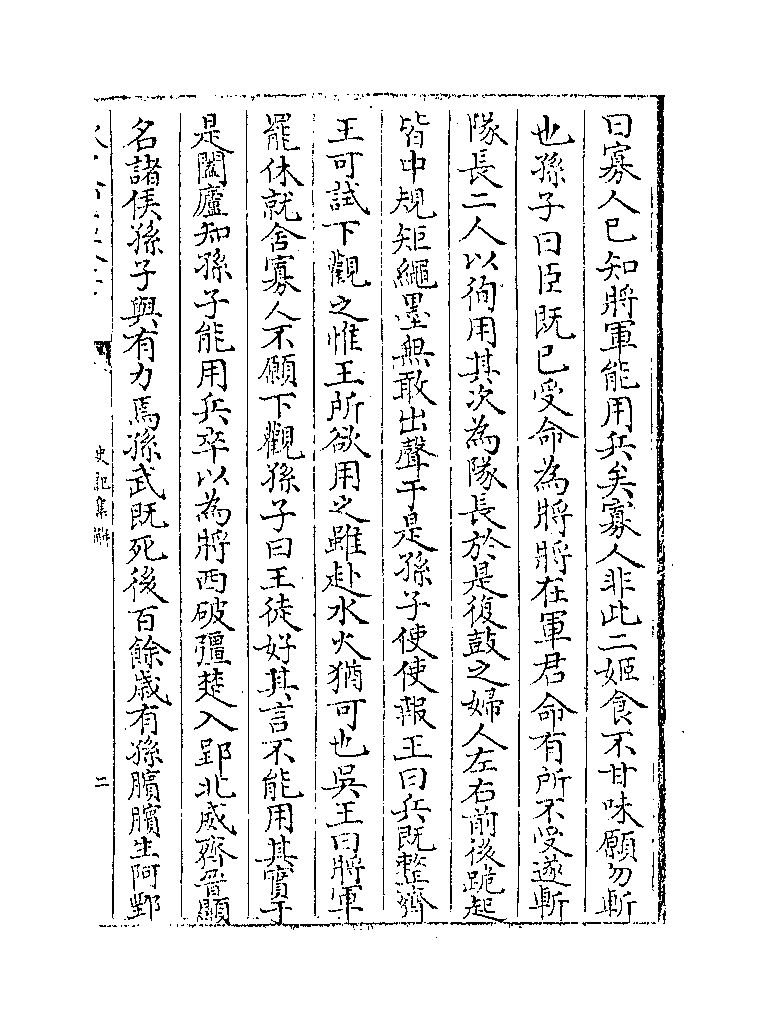 曰寡人已知將軍能用兵矣寡人非此二姬食不甘味願勿斬
也孫子曰臣既已受命為將將在軍君命有所不受遂斬
隊長二人以徇用其次為隊長於是復鼓之婦人左右前後跪起
皆中規矩繩墨無敢出聲于是孫子使使報王曰兵既整齊
王可試下觀之惟王所欲用之雖赴水火猶可也吳王曰將軍
罷休就舍寡人不願下觀孫子曰王徒好其言不能用其實于
是闔廬知孫子能用兵卒以為將西破彊楚入郢北威齊晉顯
名諸侯孫子與有力焉孫武既死後百餘歳有孫臏臏生阿鄄
史記集解
二